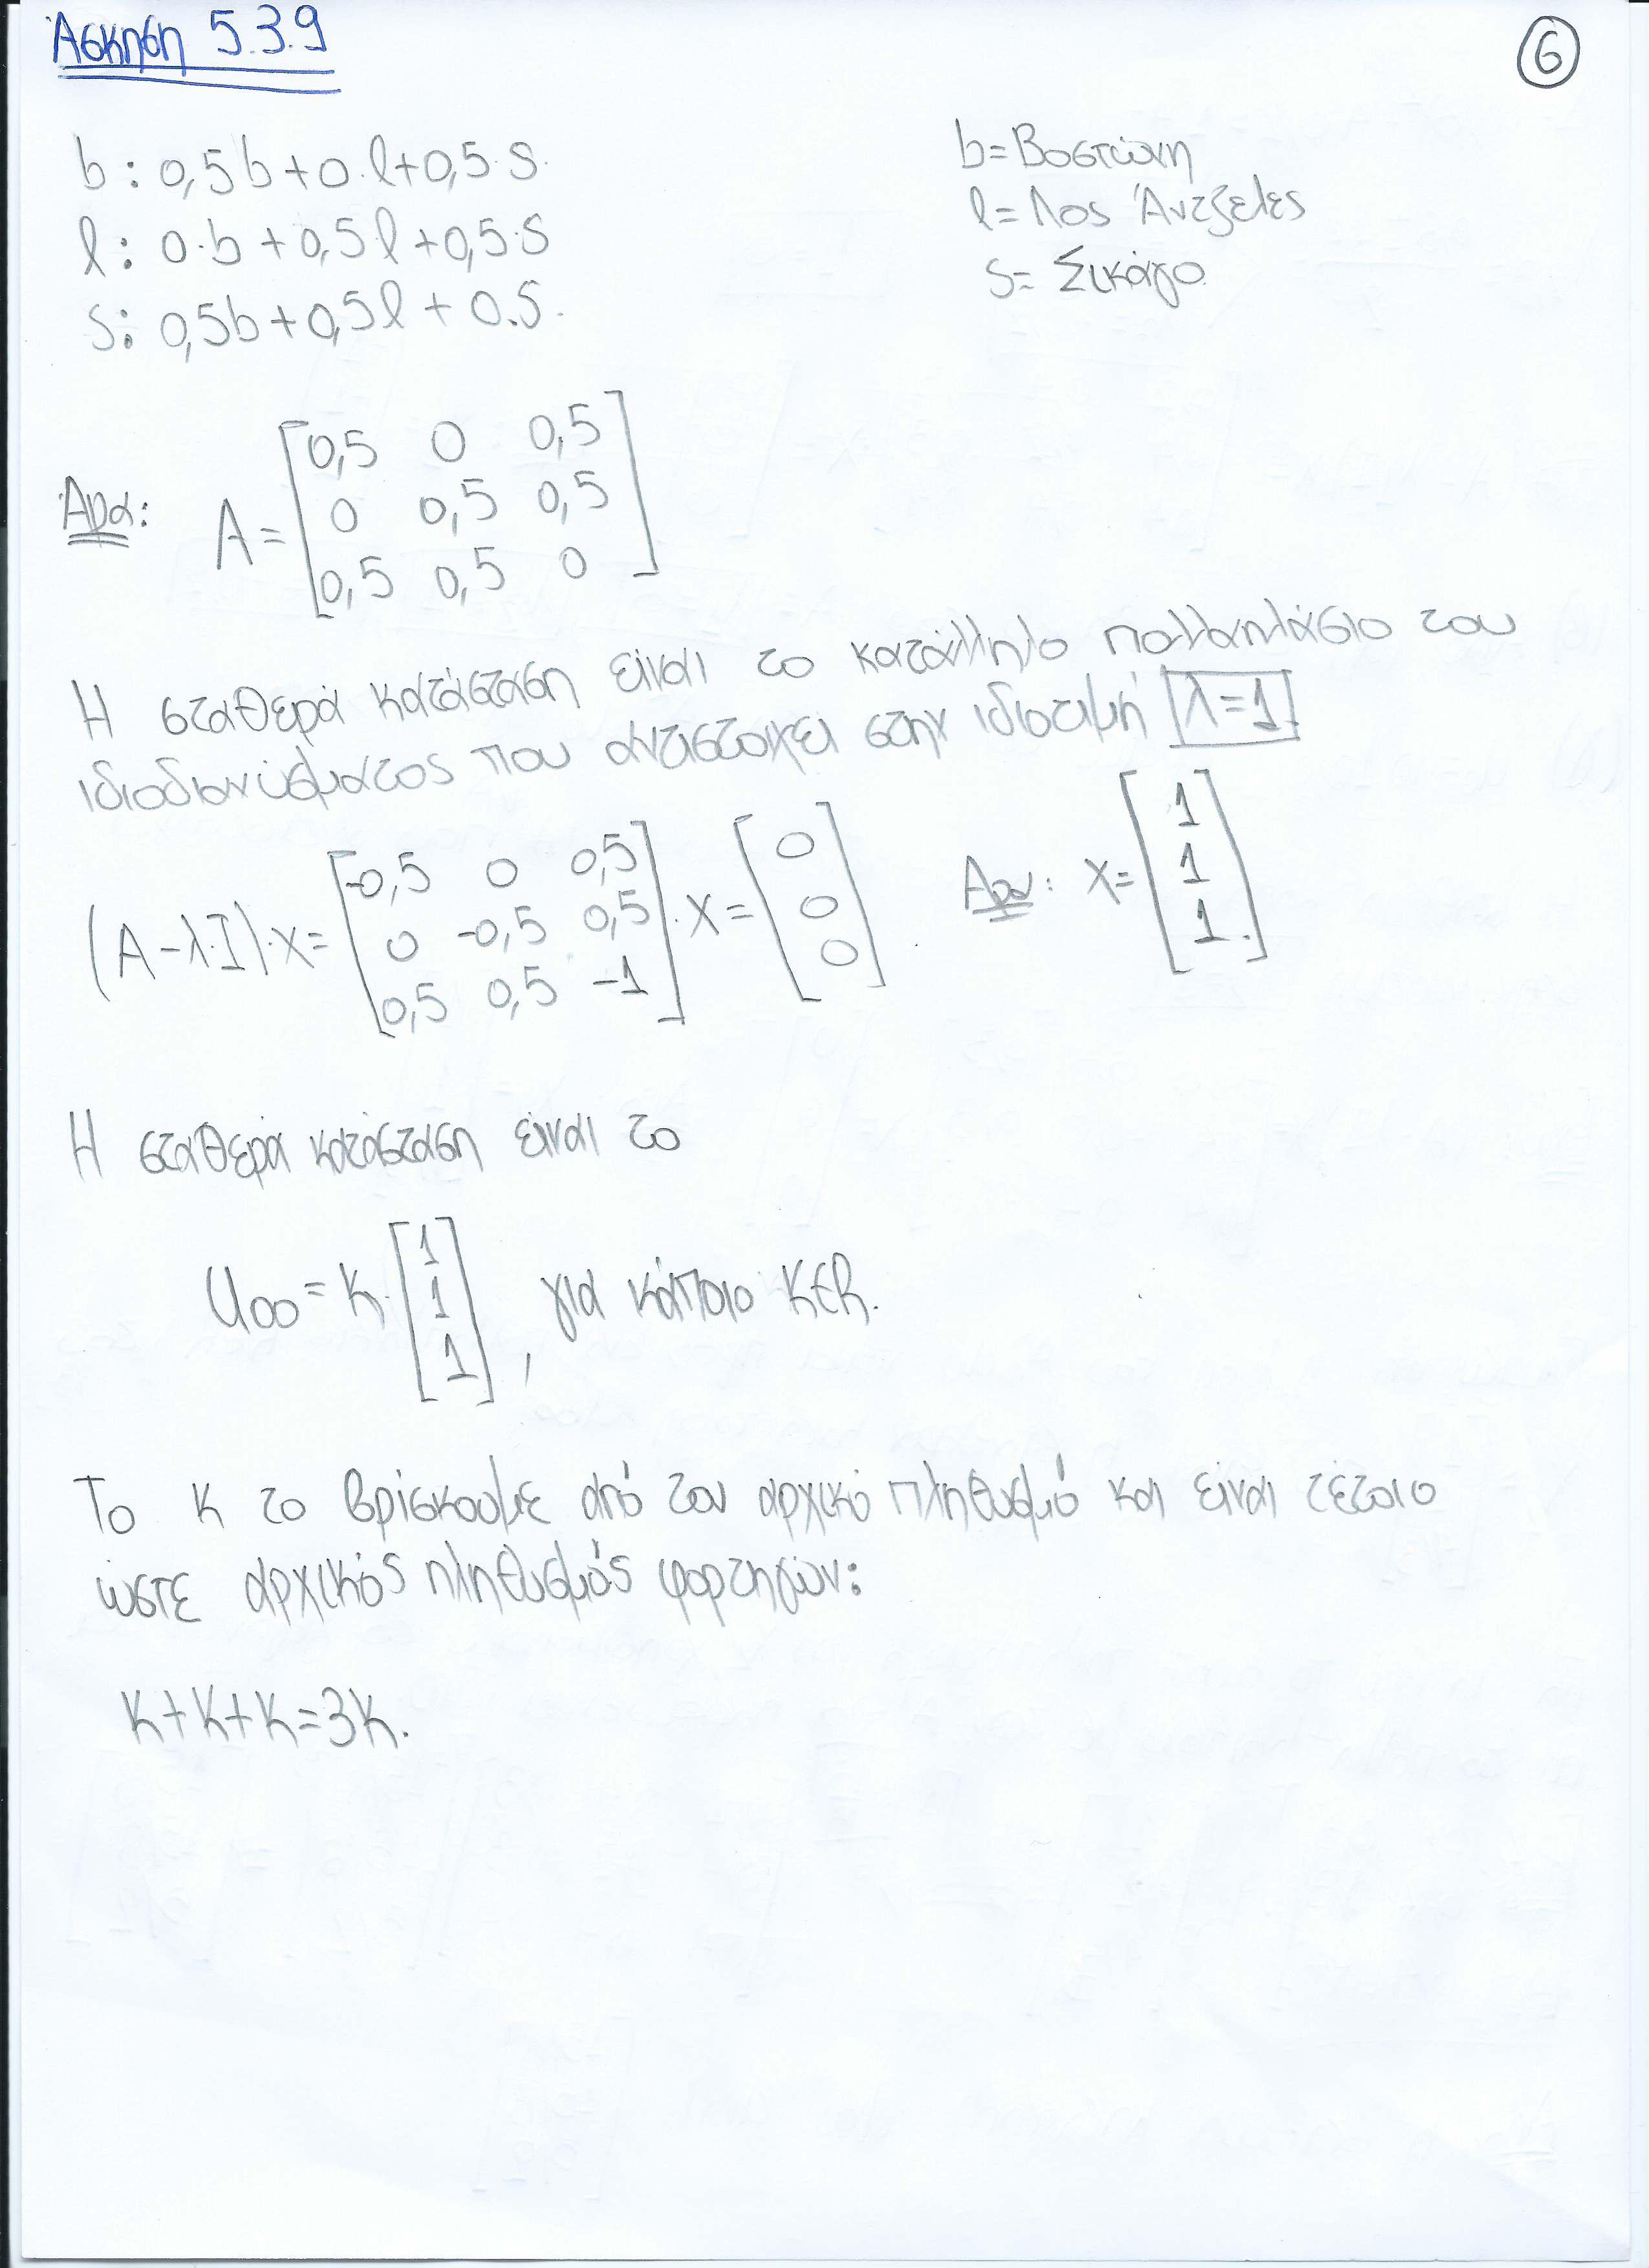 Άσκηση 5.3.9
6
b: 0,5b+0·l+0,5·s.
l: 0·b+0,5·l+0,5·s
s: 0,5b+0,5l+0·s.
b=Βοστώνη
l=Λος Άντζελες
s=Σικάγο
Άρα: A=[0,5 0 0,5
0 0,5 0,5
0,5 0,5 0]
Η σταθερά κατάσταση είναι το κατάλληλο πολλαπλάσιο του
ιδιοδιανύσματος που αντιστοιχεί στην ιδιοτιμή λ=1.
(A-λ·I)·x=[-0,5 0 0,5
0 -0,5 0,5
0,5 0,5 -1]·x=[0
0
0]. Άρα: x=[1
1
1.]
Η σταθερά κατάσταση είναι το
U∞=k·[1
1
1], για κάποιο k∈R.
Το k το βρίσκουμε από τον αρχικό πληθυσμό και είναι τέτοιο
ώστε αρχικός πληθυσμός φορτηγών:
k+k+k=3k.